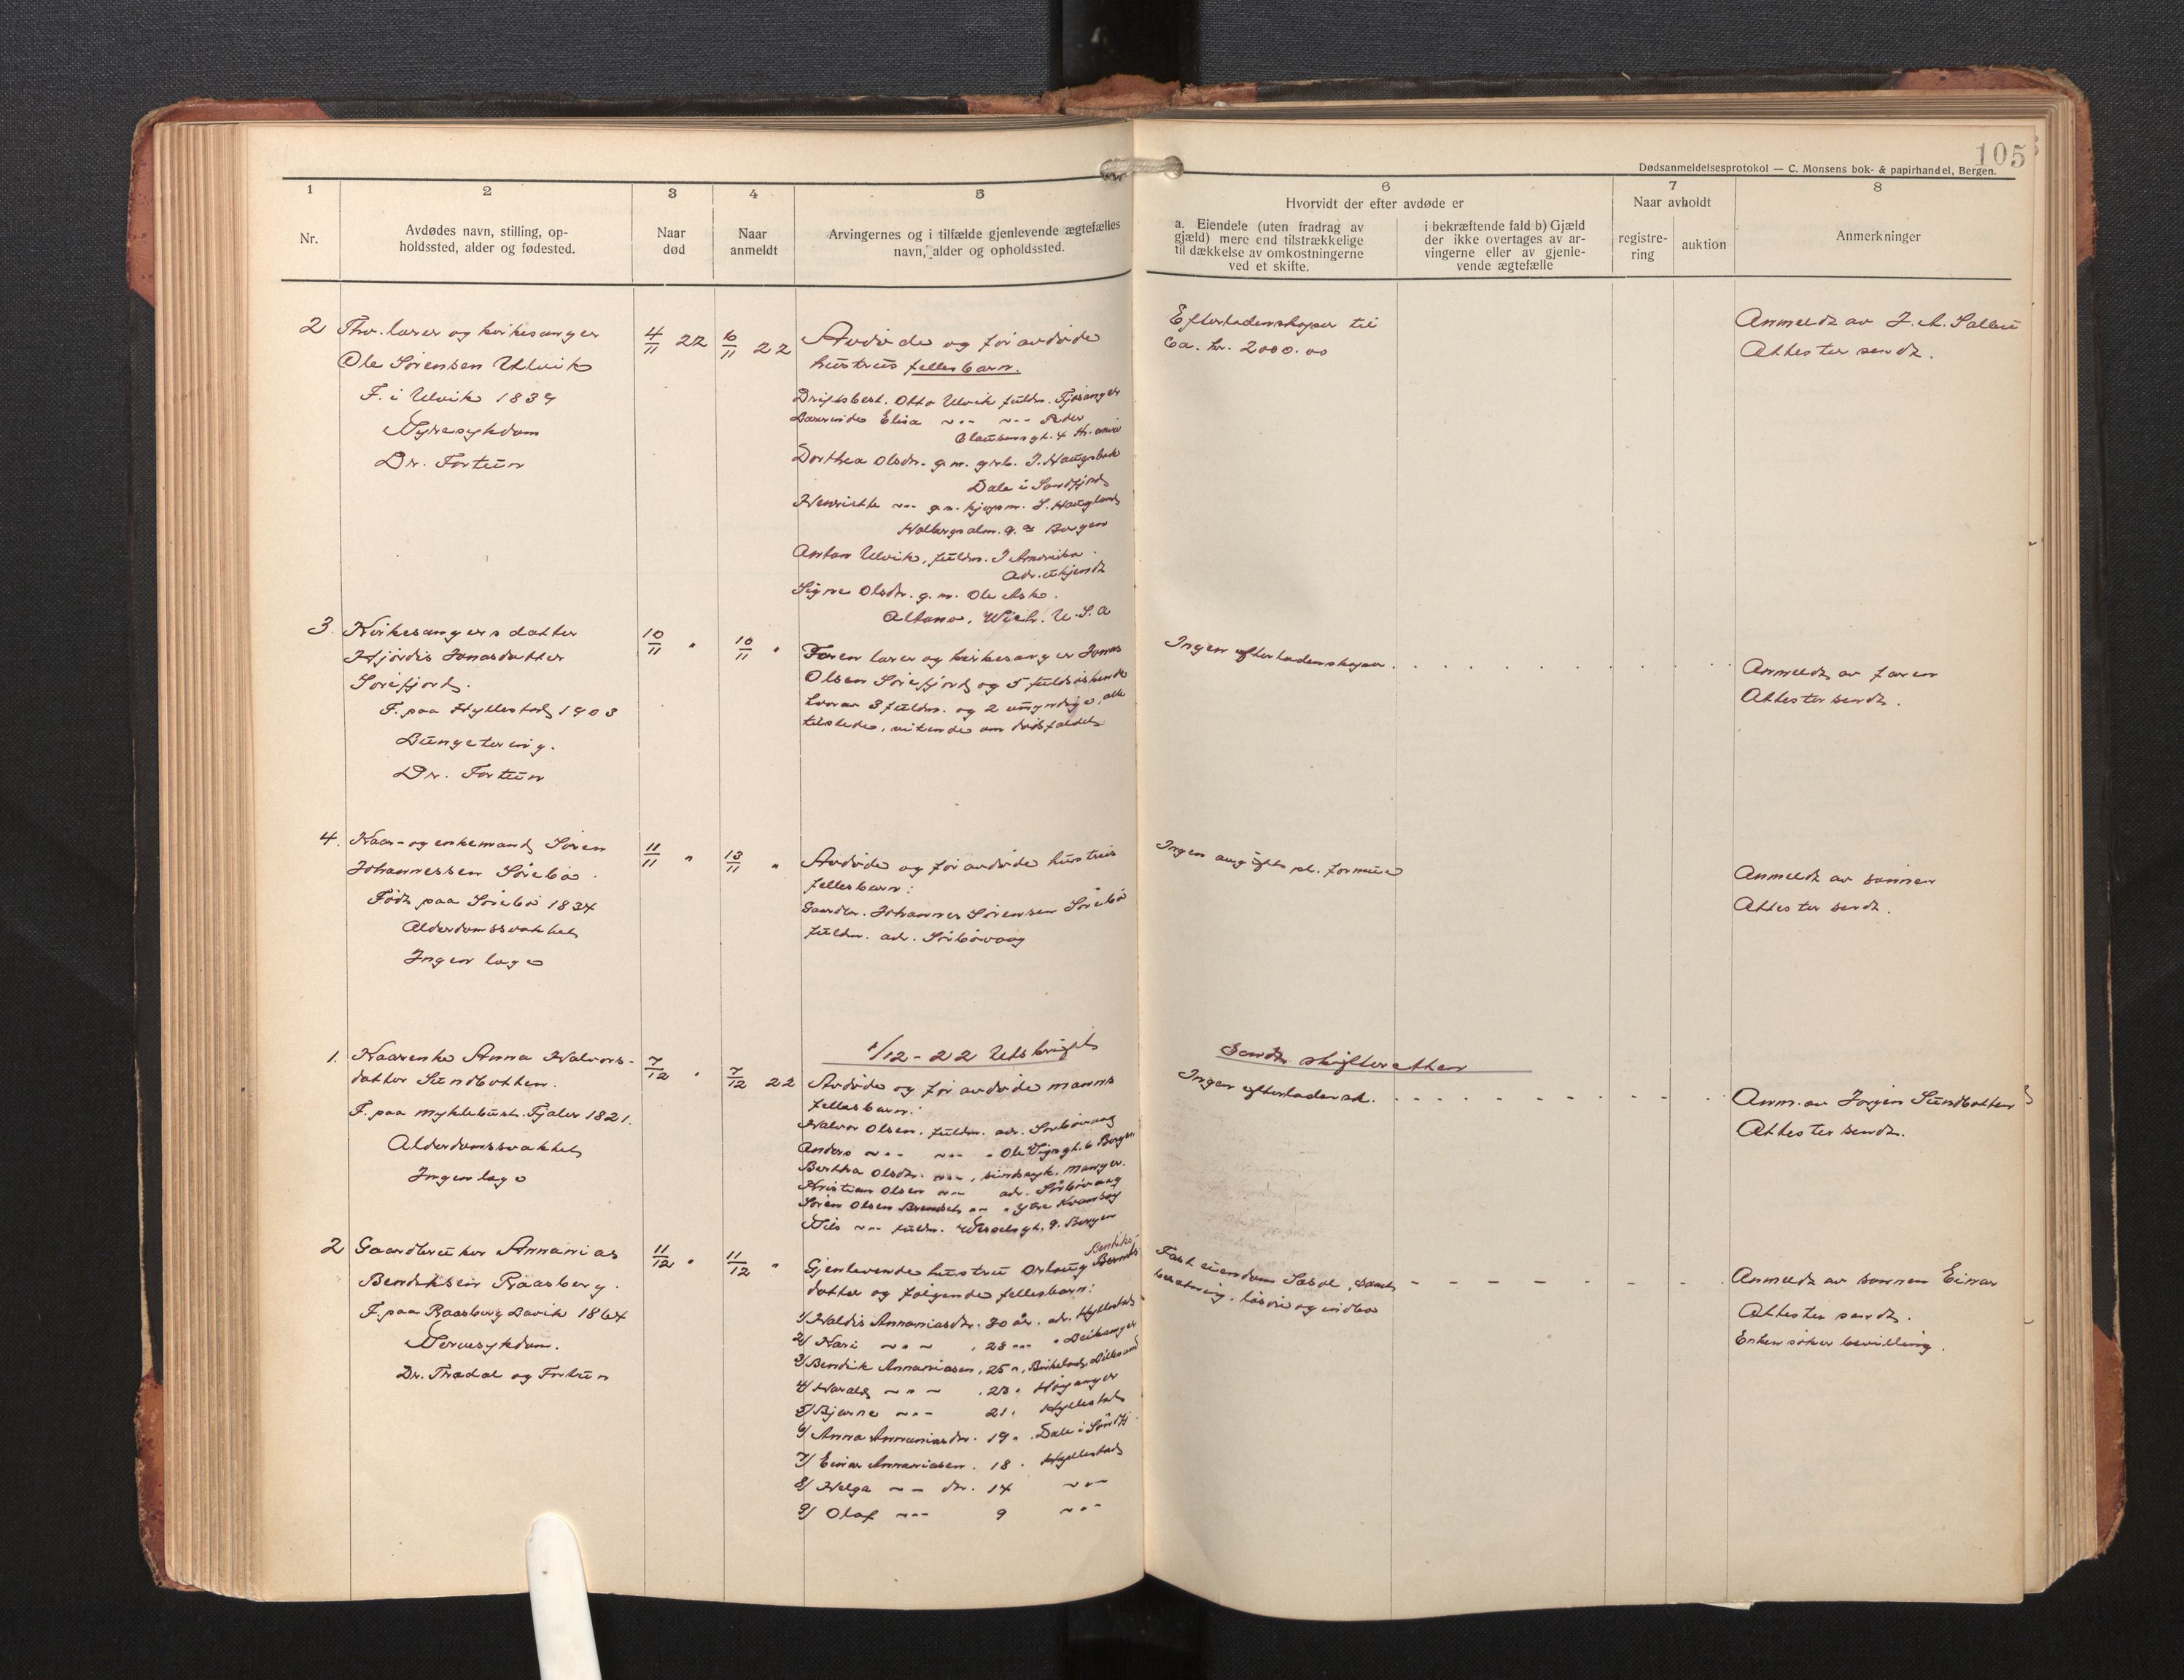 105
Dødsanmeldelsesprotokol — C. Monsens bok- & papirhandel, Bergen.
1
2
3
4
5
6
7
8
Nr.
Avdødes navn, stilling, op-
holdssted, alder og fødested.
Naar
død
Naar
anmeldt
Arvingernes og i tilfælde gjenlevende ægtefælles
navn, alder og opholdssted.
Hvorvidt der efter avdøde er
a. Eiendele (uten fradrag av
gjæld) mere end tilstrækkelige
til dækkelse av omkostningerne
ved et skifte.
i bekræftende fald b) Gjæld
der ikke overtages av ar-
vingerne eller av gjenle-
vende ægtefælle
Naar avholdt
registre-
ring
auktion
Anmerkninger
2 Fhv. lærer og kirkesanger
Ole Sørensen Ulvik
F. i Ulvik 1839
Nyresykdom
Dr. Fortun
4/11 22
6/11 22
Avdøde og før avdøde
hustrus fellesbarn.
Driftsbest. Otto Ulvik fuldm. Fjøsanger
Lærerinde Elisa ~"~ ~"~ Peder
Claussens gt. 4
Dorthea Olsdtr. g.m. grb. J. Haugsbak
Dale i Søndfjord
Henriette ~"~ g.m. kjøpm. S. Haugland
Holbergsalm. 9.a Bergen
Anton Ulvik, fuldm. I Amerika
adr. ukjendt
Signe Olsdtr. g.m. Ole Ask.
Altona, Wich. U.S.A
Efterladenskaper til
Ca. kr. 2000.00
Anmeldt av J. A. Sallei
Attester sendt.
3. Kirkesangers datter
Hjørdis Jonasdatter
Sørefjord.
F. paa Hyllestad 1903
Lungetæring.
Dr. Fortun
10/11 "
10/11 "
Faren lærer og kirkesanger Jonas
Olsen Sørefjord og 5 fuldsøskende
hvorav 3 fuldm. og 2 umyndige, alle
tilstede, vitende om dødsfaldet
Ingen efterladenskaper.
Anmeldt av faren
Attester sendt.
4. Kaar- og enkemand Søren
Johannessen Sørebø.
Født paa Sørebø 1834
Alderdomssvakhet
Ingen læge
11/11 "
13/11 "
Avdøde og før avdøde hustrus
fellesbarn:
Gaardbr. Johannes Sørensen Sørebø
fuldm. adr. Sørbøvaag
Ingen avgiftspl. formue
Anmeldt av sønnen
Attester sendt.
1/12 - 22 Utskrift
Sendt skifteretten
1. Kaarenke Anna Halvors-
datter Sundbotten.
F. paa Myklebust. Fjaler 1821.
Alderdomssvakhet
Ingen læge
7/12 "
7/12 22
Avdøde og før avdøde manns
fellesbarn:
Halvor Olsen, fuldm. adr. Sørbøvaag
Anders ~"~ ~"~ " Ole Vigs gt. 6 Bergen
Bertha Olsdtr. ~"~, sindssyk. Manger.
Kristian Olsen ~"~ adr. Sørbøvaag
Søren Olsen ~"~ " Ytre Kvamsøy
Nils ~"~ fuldm. Wesselsgt. 9. Bergen
Ingen efterladensk.
Anm. av Jørgen Sundbotten
Attester sendt.
2 Gaardbruker Annanias
Bendiksen Raasberg.
F. paa Raasberg Lavik 1864
Nervesykdom.
Dr. Thradal og Fortun
11/12 "
11/12 "
Bendiks-
Gjenlevende hustru Orlaug
datter og følgende fellesbarn:
1/ Haldis Annaniasdtr. 30 år. adr. Hyllestad
2/ Kari ~"~ , 28 ~"~ " Leikanger
3/ Bendik Annaniasen, 25 ", Birkeland, Lillesand
4/ Harald ~"~ , 23 " Høyanger
5/ Bjarne ~"~ 21 " Hyllestad
6/ Anna Annaniasdtr. 19 " Dale i Søndfj.
7/ Einar Annaniasen. 18 " Hyllestad
8/ Helga ~"~ dtr. 14 ~"~
9/ Olaf ~"~ 9 ~"~
Fast eiendom samt
besætning, løsøre og indbo
Anmeldt av sønnen Einar
Attester sendt.
Enken søker bevilling.